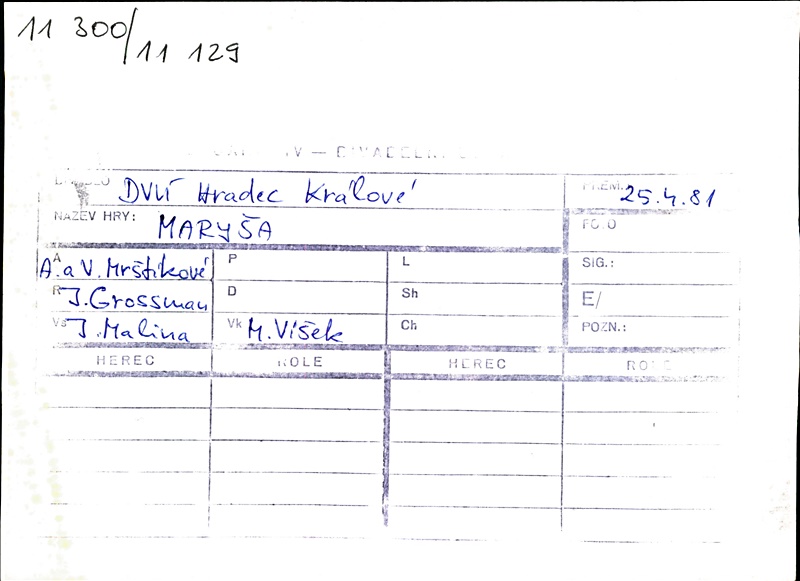 11 300/11 129
IV — DIVADELNÍ
DIVADLO DVUT Hradec Králové PREM. 25.4.81
NÁZEV HRY: MARYŠA FOTO
A A. a V. Mrštíkové P L SIG.:
R J. Grossman D Sh E/
Vs J. Malina Vk M. Víšek Ch POZN.:
HEREC ROLE HEREC ROLE